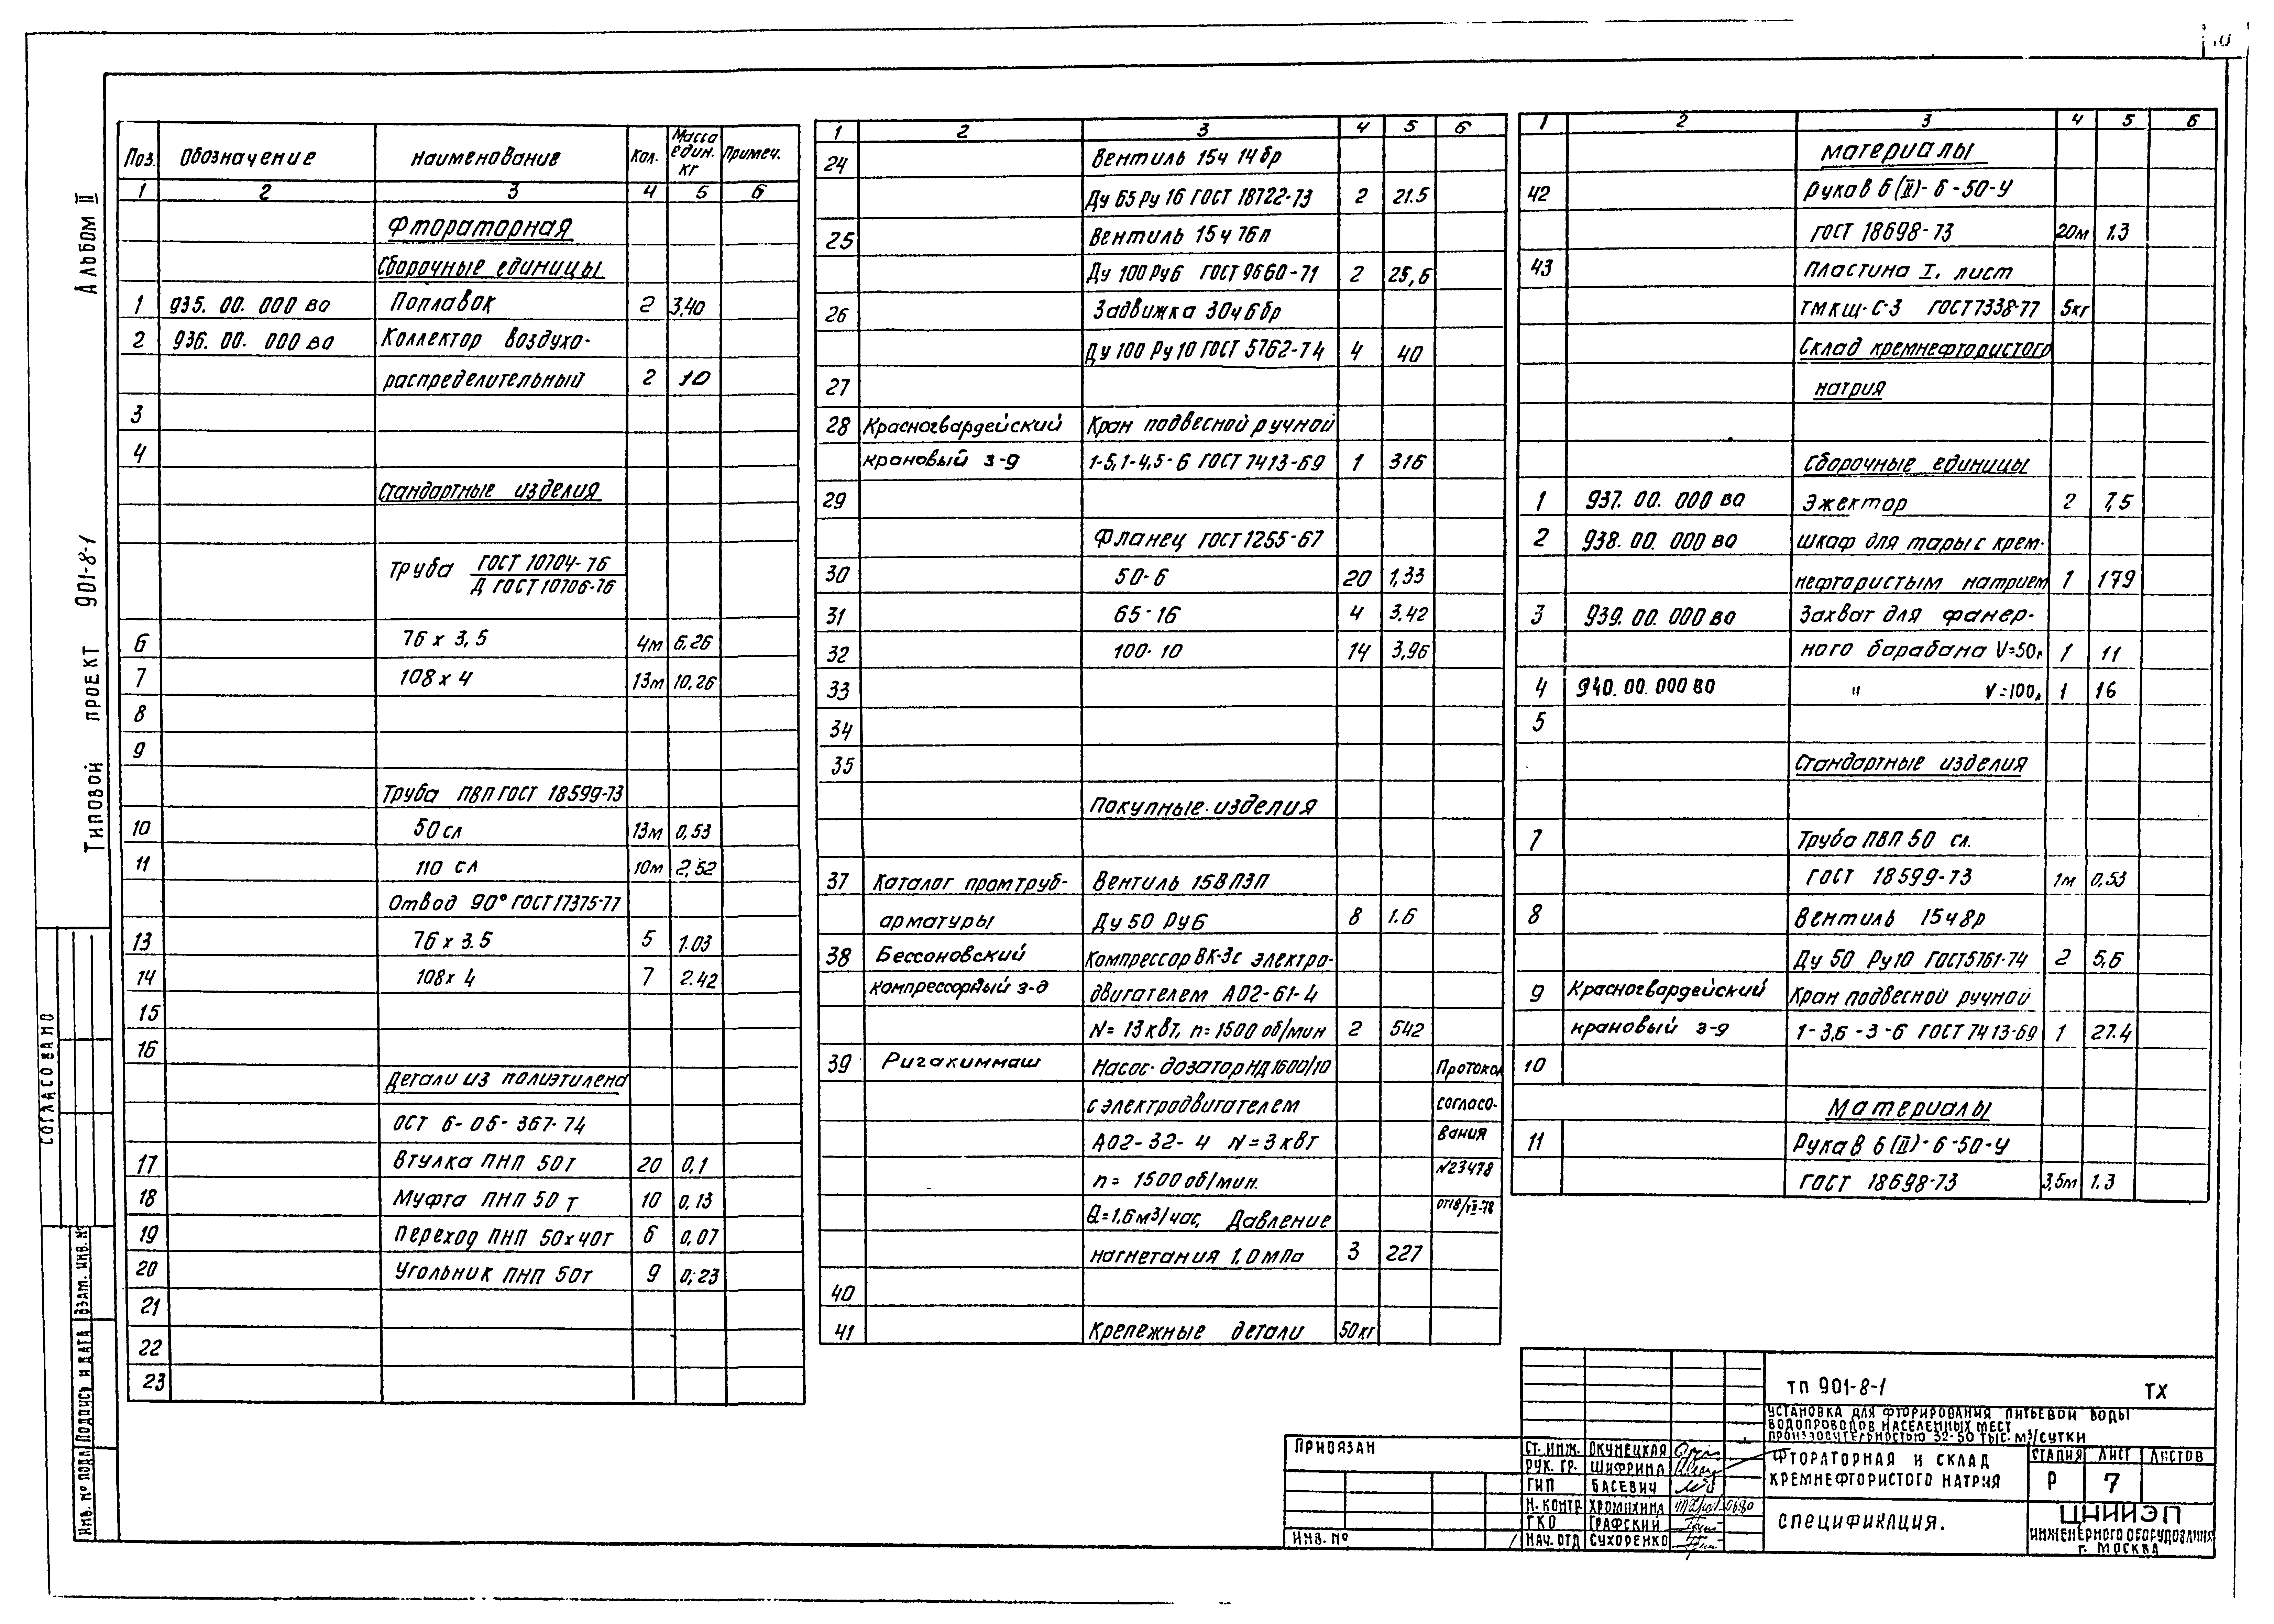 Альбом II
Типовой проект 901-8-1
СОГЛАСОВАНО
ВЗАМ. ИНВ. №
ПОДПИСЬ И ДАТА
ИНВ. № ПОДЛ
Поз. Обозначение Наименование Кол. Масса един. кг Примеч.
1 2 3 4 5 6
Фтораторная
Сборочные единицы
1 935.00.000 ВО Поплавок 2 3,40
2 936.00.000 ВО Коллектор воздухо-
распределительный 2 10
3
4
Стандартные изделия
Труба ГОСТ 10704-76
Д ГОСТ 10706-76
6 76 х 3,5 4м 6,26
7 108 х 4 13м 10,26
8
9
Труба ПВП ГОСТ 18599-73
10 50 СЛ 13м 0,53
11 110 СЛ 10м 2,52
Отвод 90° ГОСТ 17375-77
13 76 х 3.5 5 1.03
14 108 х 4 7 2.42
15
16
Детали из полиэтилена
ОСТ 6-05-367-74
17 Втулка ПНП 50Т 20 0,1
18 Муфта ПНП 50 Т 10 0,13
19 Переход ПНП 50х40Т 6 0,07
20 Угольник ПНП 50Т 9 0,23
21
22
23
1 2 3 4 5 6
24 Вентиль 15ч 14бр
Ду 65 Ру 16 ГОСТ 18722-73 2 21.5
25 Вентиль 15ч 76п
Ду 100 Ру6 ГОСТ 9660-71 2 25,6
26 Задвижка 30ч6бр
Ду 100 Ру10 ГОСТ 5762-74 4 40
27
28 Красногвардейский Кран подвесной ручной
крановый з-д 1-5,1-4,5-6 ГОСТ 7413-69 1 316
29
Фланец ГОСТ 1255-67
30 50-6 20 1,33
31 65-16 4 3.42
32 100-10 14 3,96
33
34
35
Покупные изделия
37 Каталог промтруб- Вентиль 15ВП3П
арматуры Ду 50 Ру6 8 1.6
38 Бессоновский Компрессор ВК-3с электро-
компрессорный з-д двигателем АО2-61-4
N=13 кВт, n=1500 об/мин 2 542
39 Ригахиммаш Насос-дозатор НД 1600/10 Протокол
с электродвигателем согласо-
АО2-32-4 N=3 кВт вания
n= 1500 об/мин. №23478
Q=1,6м3/час, Давление от18/VII-78
нагнетания 1,0 мПа 3 227
40
41 Крепежные детали 50кг
1 2 3 4 5 6
Материалы
42 Рукав Б(II)-6-50-У
ГОСТ 18698-73 20м 1.3
43 Пластина I, лист
ТМКЩ-С-3 ГОСТ 7338-77 5кг
Склад кремнефтористого
натрия
Сборочные единицы
1 937.00.000 ВО Эжектор 2 7,5
2 938.00.000 ВО Шкаф для тары с крем-
нефтористым натрием 1 179
3 939.00.000 ВО Захват для фанер-
ного барабана V=50л 1 11
4 940.00.000 ВО " V=100л 1 16
5
Стандартные изделия
7 Труба ПВП 50 СЛ.
ГОСТ 18599-73 1м 0,53
8 Вентиль 15ч8р
Ду 50 Ру10 ГОСТ 5761-74 2 5,6
9 Красногвардейский Кран подвесной ручной
крановый з-д 1-3,6-3-6 ГОСТ 7413-69 1 27.4
10
Материалы
11 Рукав Б(II)-6-50-У
ГОСТ 18698-73 3,5м 1.3
ПРИВЯЗАН
ИНВ. №
СТ. ИНЖ. ОКУНЕЦКАЯ
РУК. ГР. ШИФРИНА
ГИП БАСЕВИЧ
Н. КОНТР ХРОМИХИНА 0680
ГКО ГРАФСКИЙ
НАЧ. ОТД СУХОРЕНКО
ТП 901-8-1 ТХ
УСТАНОВКА ДЛЯ ФТОРИРОВАНИЯ ПИТЬЕВОЙ ВОДЫ
ВОДОПРОВОДОВ НАСЕЛЕННЫХ МЕСТ
ПРОИЗВОДИТЕЛЬНОСТЬЮ 32-50 ТЫС. М3/СУТКИ
ФТОРАТОРНАЯ И СКЛАД
КРЕМНЕФТОРИСТОГО НАТРИЯ
СТАДИЯ ЛИСТ ЛИСТОВ
Р 7
СПЕЦИФИКАЦИЯ.
ЦНИИЭП
ИНЖЕНЕРНОГО ОБОРУДОВАНИЯ
г. МОСКВА